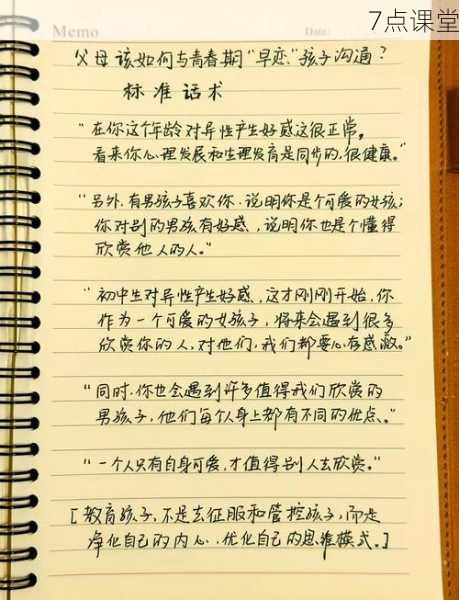 7点课堂
Memo
Date:
父母该如何与青春期"早恋"孩子沟通?
标准话术
"在你这个年龄对异性产生好感这很正常。
看来你心理发展和生理发育是同步的,很健康。"
"另外,有男孩子喜欢你,说明你是个可爱的女孩;
你对别的男孩有好感,说明你也是个懂得
欣赏他人的人。"
"初中生对异性产生好感,这才刚刚开始,你
作为一个可爱的女孩子,将来会遇到很多
欣赏你的人,对他们,我们都要心存感激。"
"同时,你也会遇到许多值得我们欣赏的
男孩子,他们每个人身上都有不同的优点。"
"一个人只有自身可爱,才值得别人去欣赏。"
[教育孩子,不是去征服和管控孩子,而是
净化自己的内心,优化自己的思维模式。]